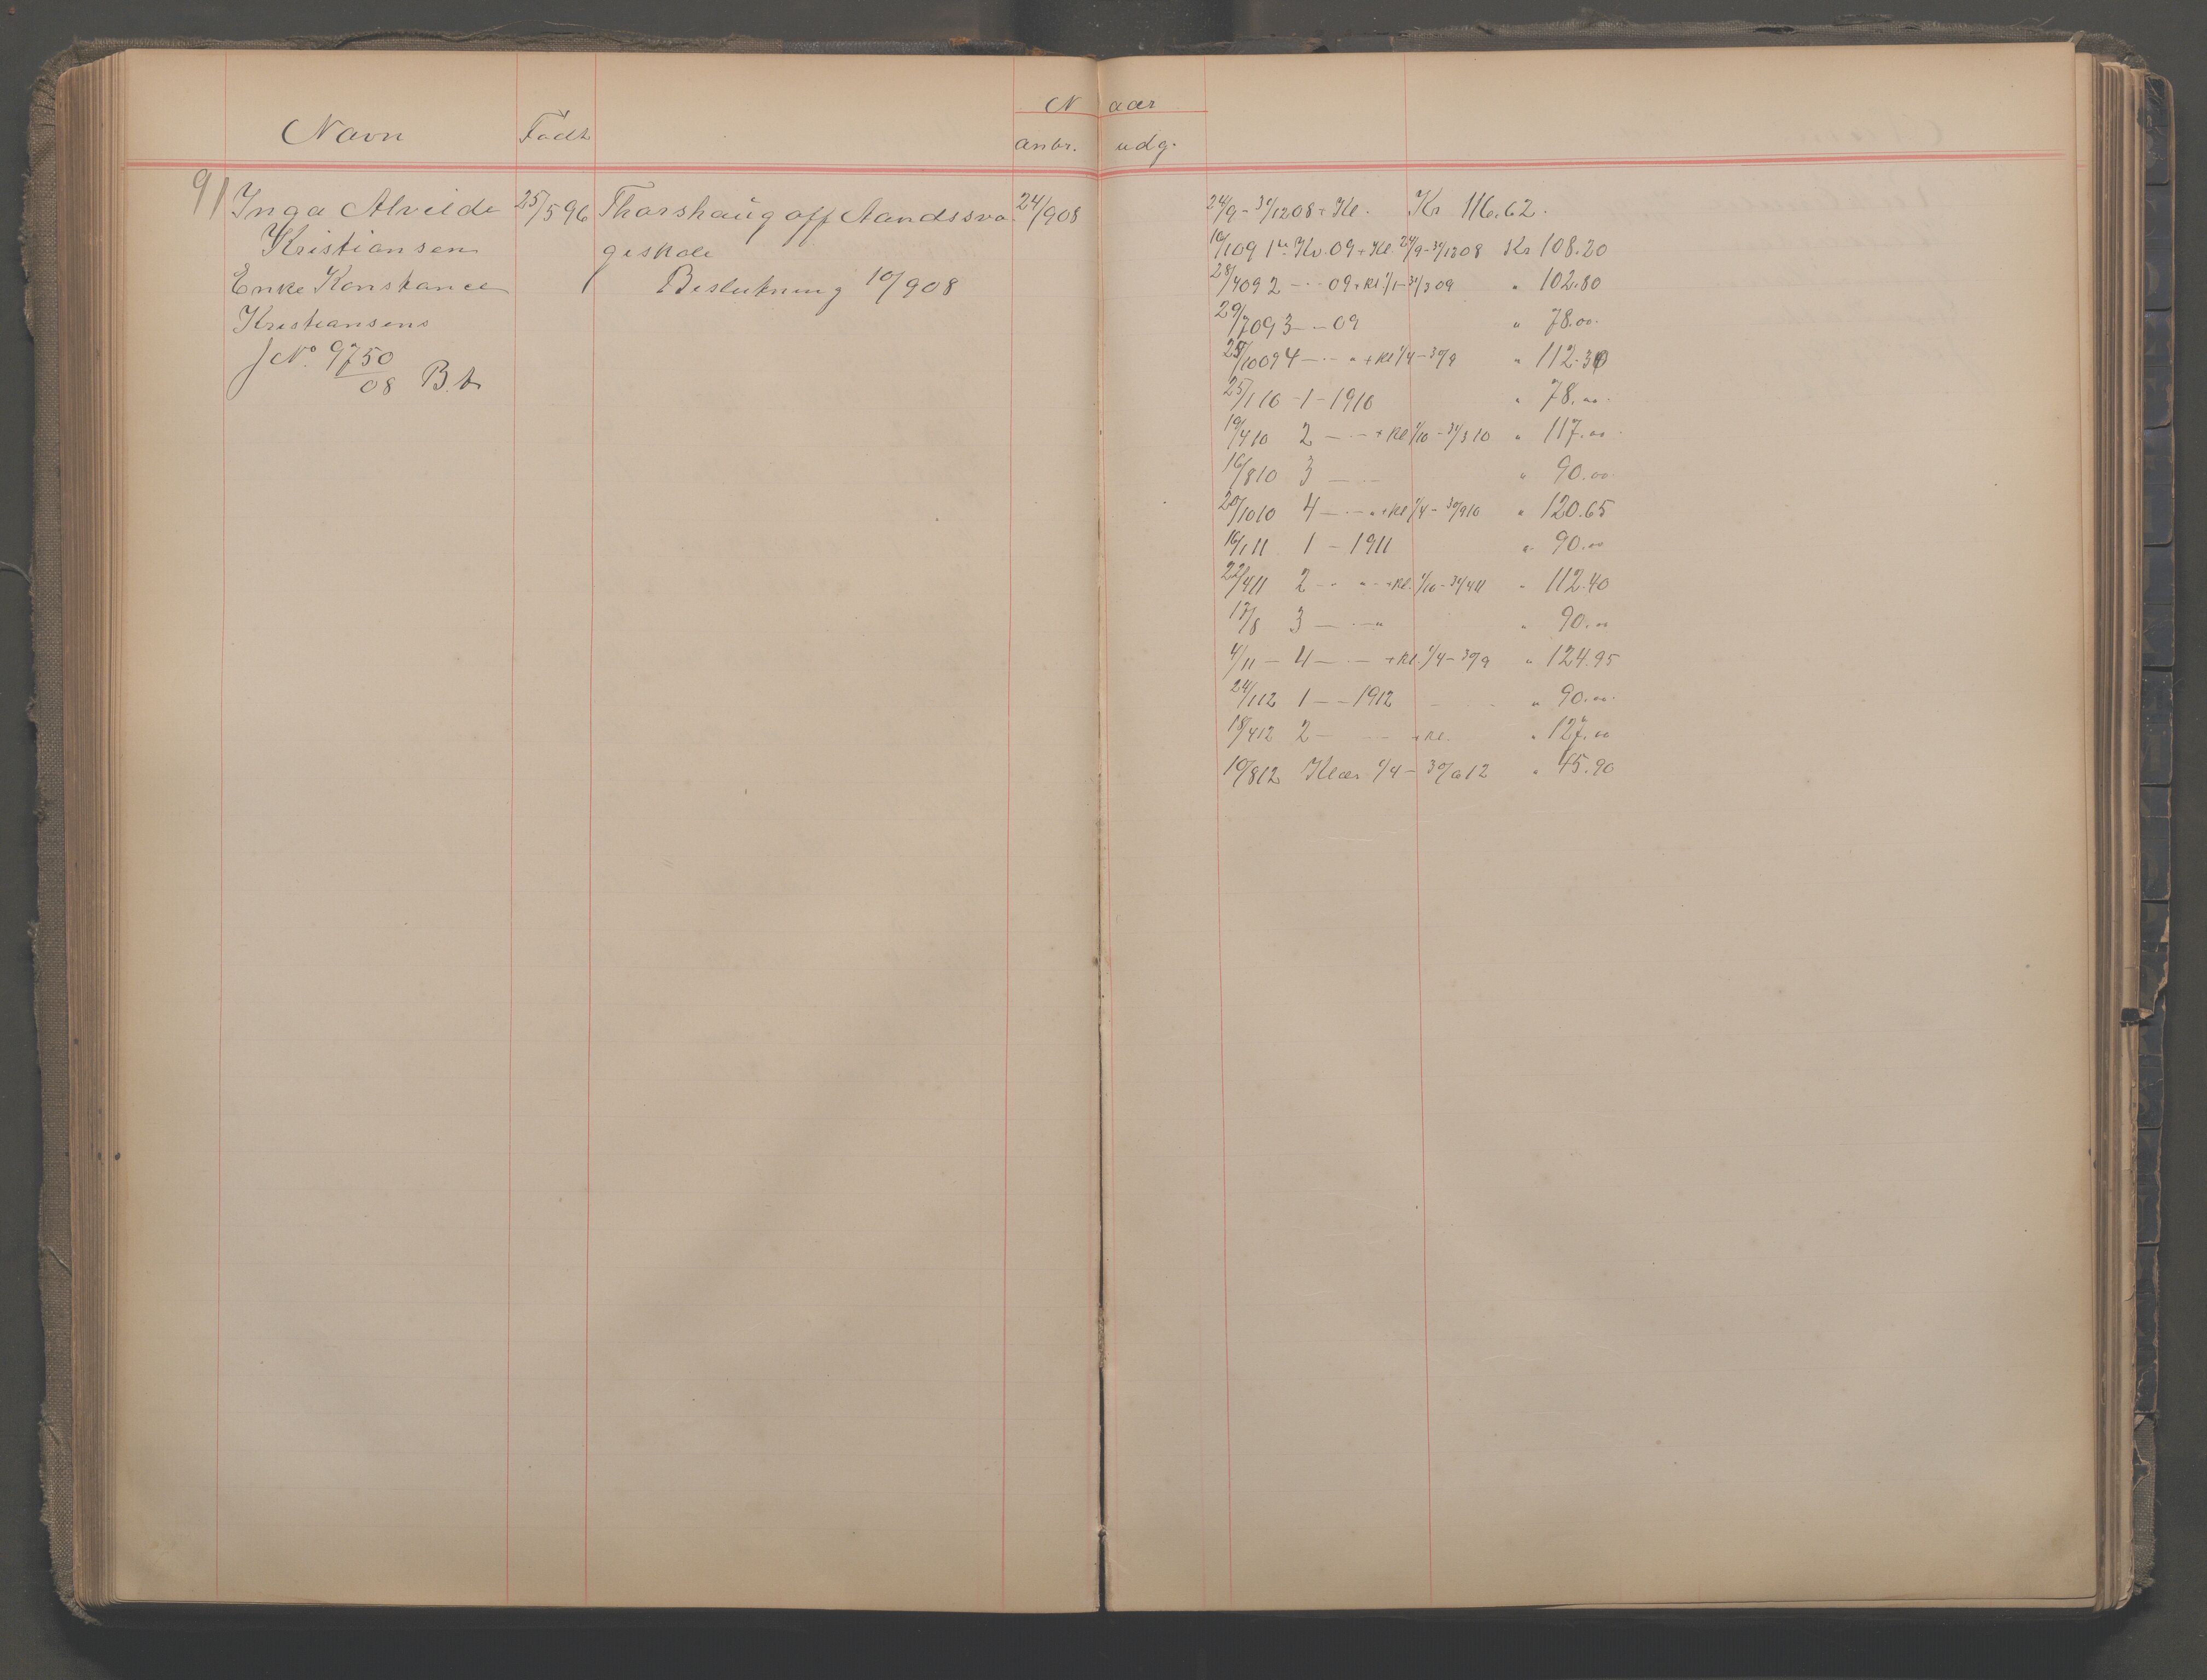 Naar
Navn Født anbr. udg.
91 Inga Alvilde 25/5 96 Thorshaug off Aandssva 24/9 08
Kristiansen geskole
Enke Konstance Beslutning 10/9 08
Kristiansens
J No. 9750/08 B.b
24/9 - 31/12 08 + Kl. Kr 116.62.
16/1 09 1ste Kv. 09 + Kl. 24/9 - 31/12 08 Kr 108.20
28/4 09 2 — 09 + kl. 1/1 - 31/3 09 " 102.80
29/7 09 3 — 09 " 78.00.
25/10 09 4 — " + kl 1/4 - 30/9 " 112.30
25/1 10 - 1 - 1910 " 78.00.
19/4 10 2 — + kl 1/10 - 31/3 10 " 117.00.
16/8 10 3 — " 90.00.
20/10 10 4 — " + kl 1/4 - 30/9 10 " 120.65
16/1 11 1 - 1911 " 90.00
22/4 11 2 — " + kl. 1/10 - 31/4 11 " 112.40
17/8 3 — " " 90.00
4/11 - 4 — + kl. 1/4 - 30/9 " 124.95
24/1 12 1 — 1912 " 90.00.
18/4 12 2 — + kl. " 127.00
10/8 12 Klær 1/4 - 30/6 12 " 45.90